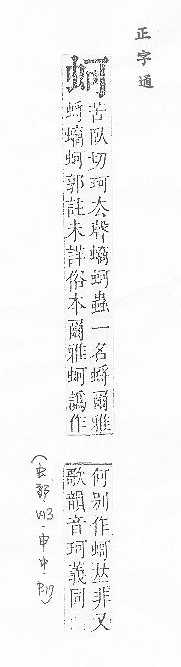 正字通
蚵
苦臥切珂去聲螪蚵蟲一名蛶爾雅
蛶螪蚵郭註未詳俗本爾雅蚵譌作
何別作𠀤非又
歌韻音珂義同
(虫部 申中 P.17)